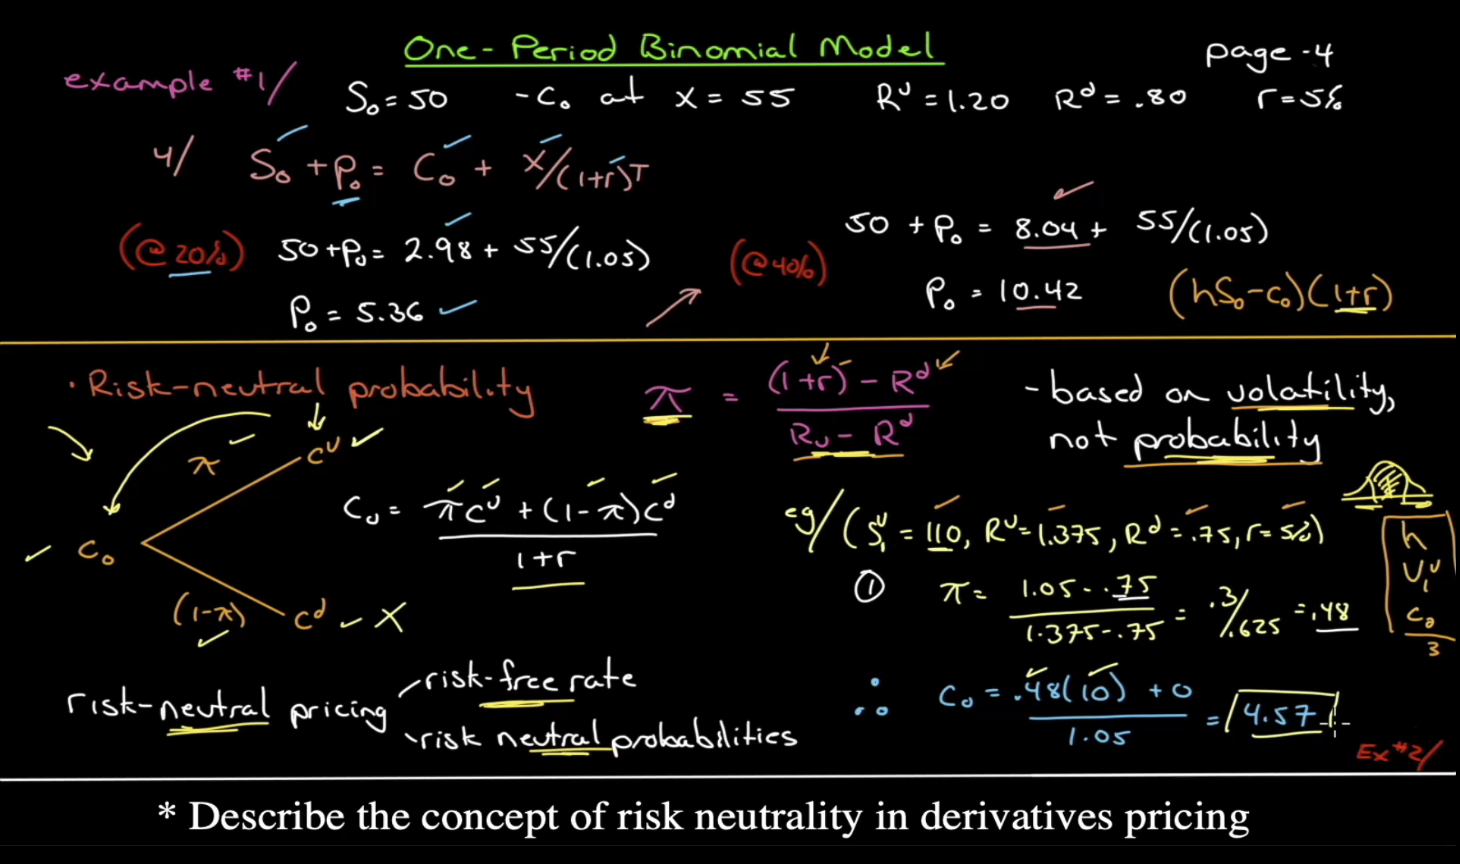 One-Period Binomial Model
page-4
example #1/
S₀ = 50 - C₀ at X = 55 Rᵁ = 1.20 Rᵈ = .80 r = 5%
4/ S₀ + P₀ = C₀ + X/(1+r)ᵀ
(@20%) 50 + P₀ = 2.98 + 55/(1.05)
P₀ = 5.36
(@40%) 50 + P₀ = 8.04 + 55/(1.05)
P₀ = 10.42
(hS₀ - C₀)(1+r)
· Risk-neutral probability
π = (1+r) - Rᵈ
Rᵤ - Rᵈ
- based on volatility,
not probability
π Cᵁ
C₀
(1-π) Cᵈ X
C₀ = πCᵁ + (1-π)Cᵈ
1+r
eg/ (S₁ᵁ = 110, Rᵁ = 1.375, Rᵈ = .75, r = 5%)
① π = 1.05 - .75
1.375 - .75
= .3/.625 = .48
h
V₁ᵁ
C₀
3
risk-neutral pricing
risk-free rate
risk neutral probabilities
∴ C₀ = .48(10) + 0
1.05
= 4.57
Ex #2/
* Describe the concept of risk neutrality in derivatives pricing